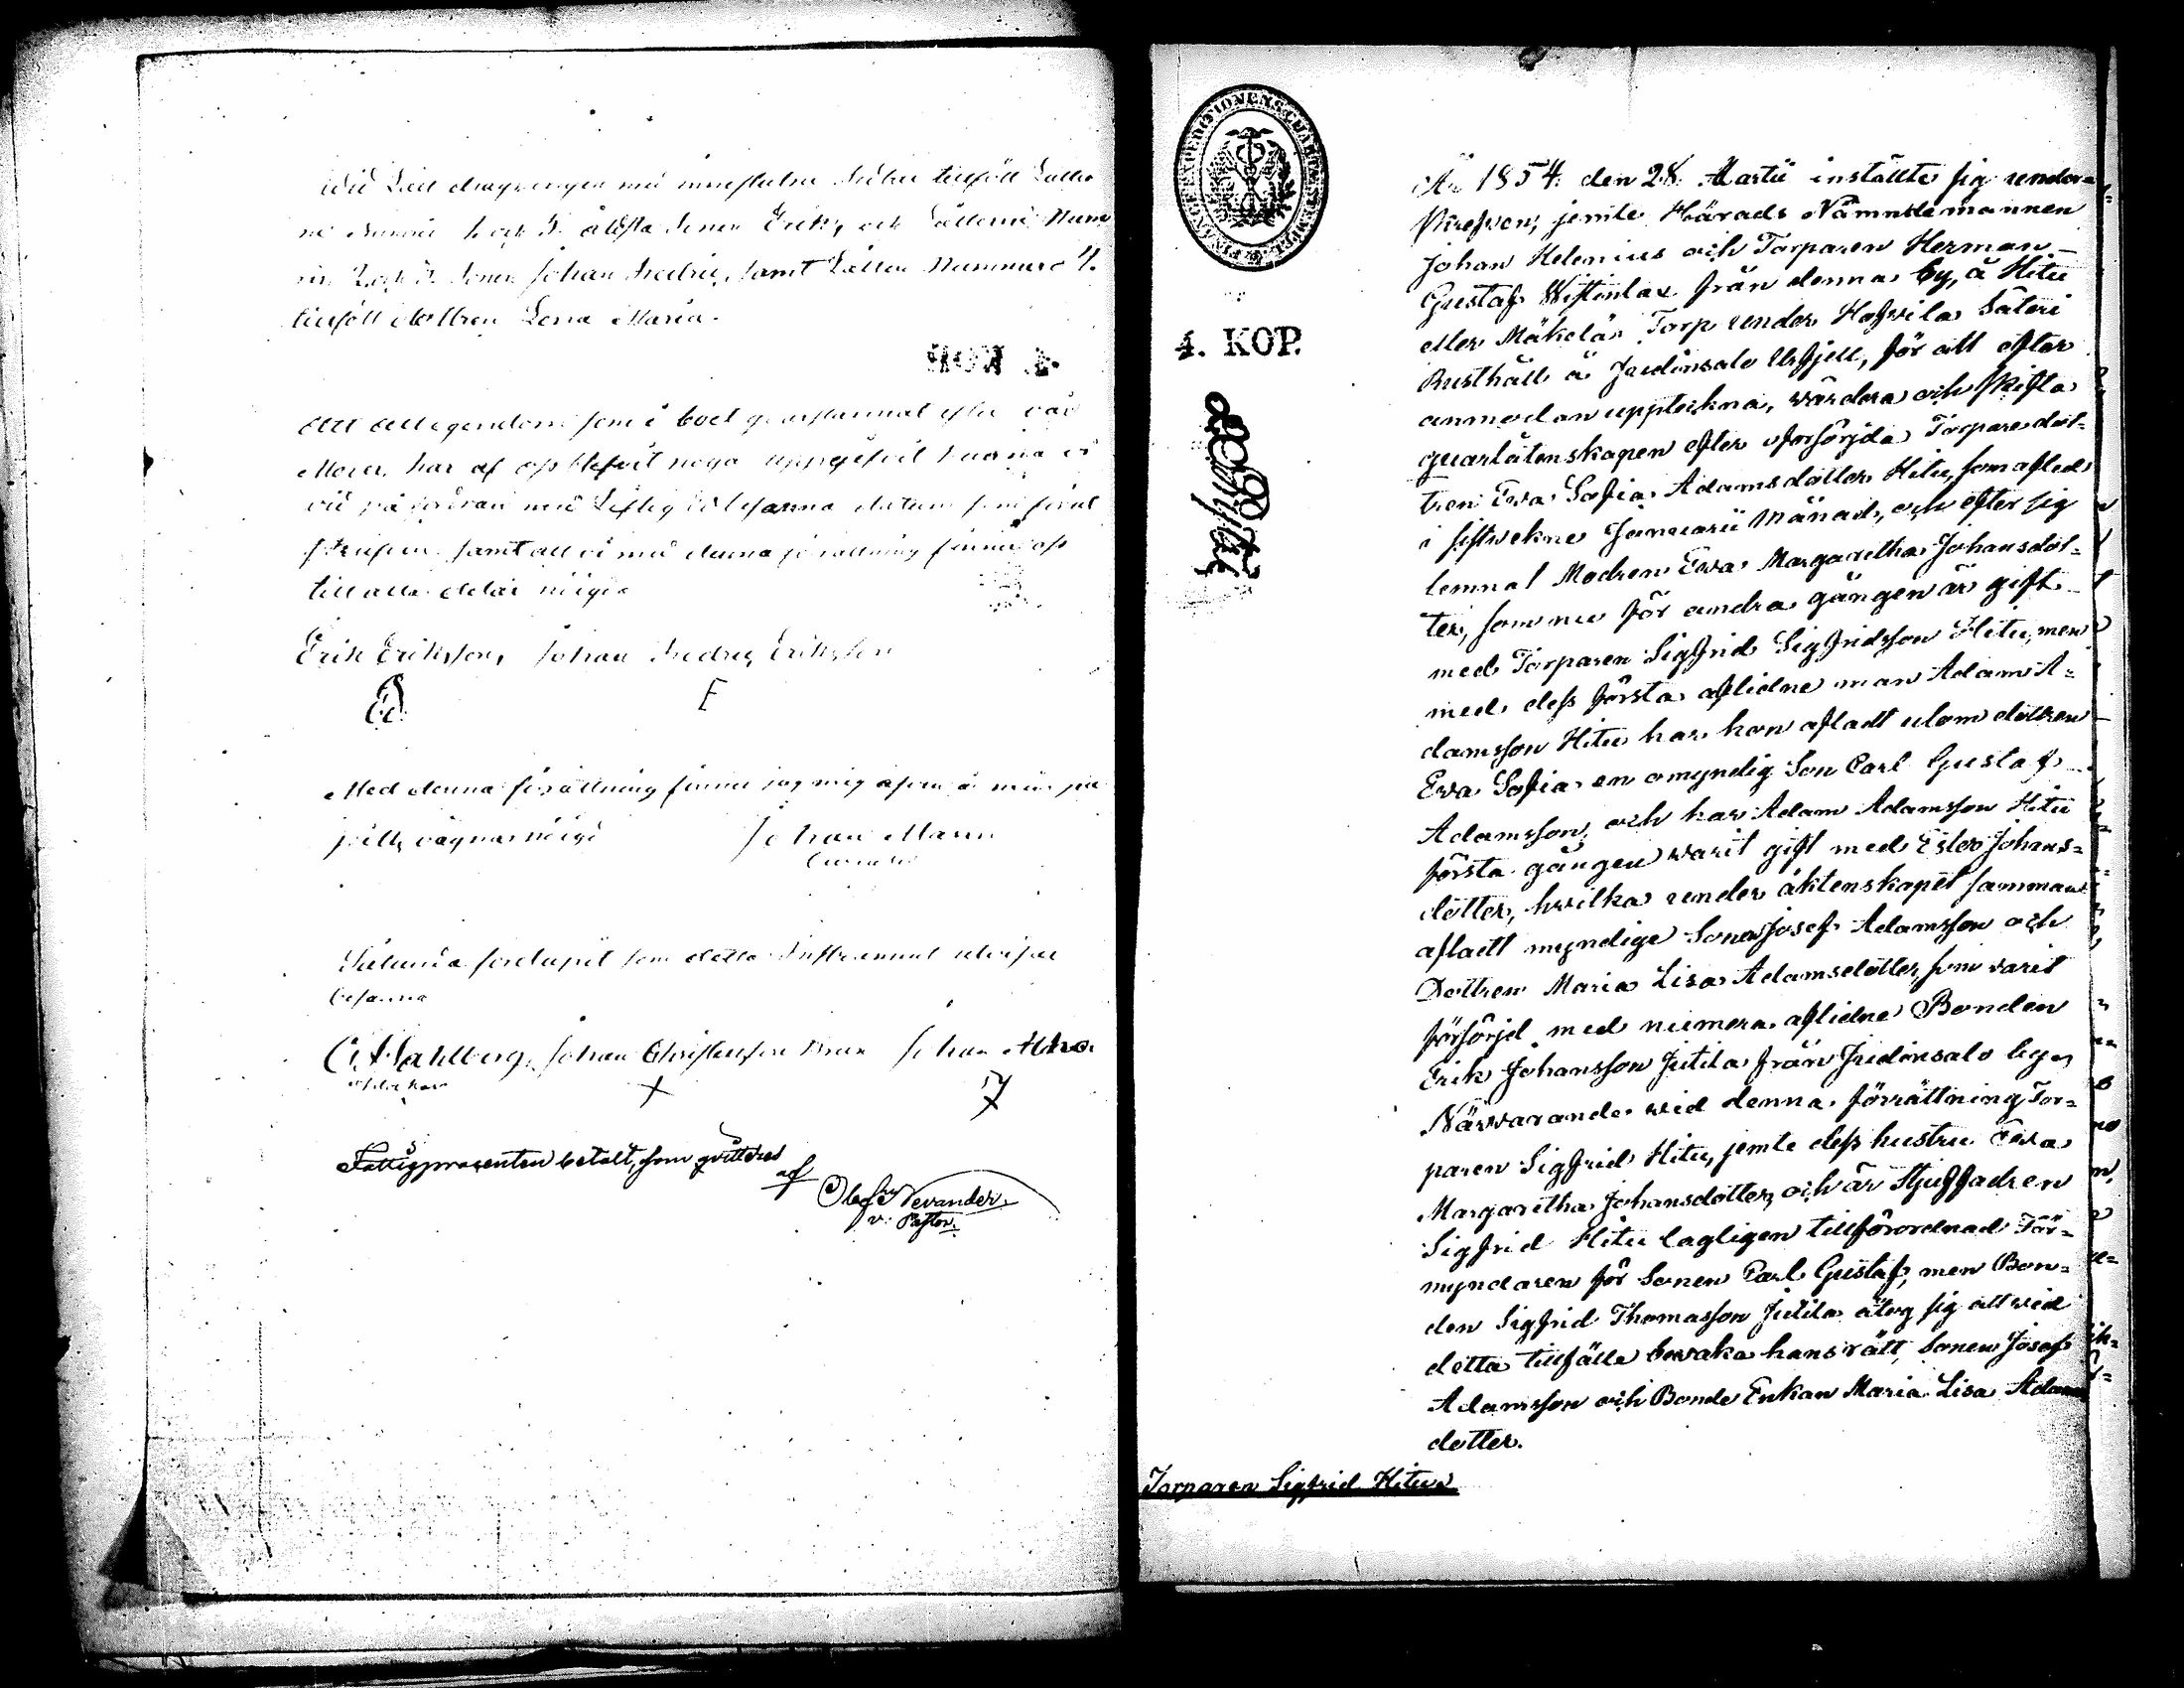 wid Lått dragningen med innestulne tillföll Lotter
ne och 3. äldsta Sonen Erik, och Lotterne Num
Sonen Johan Fredric, samt Lotten Nummer 4.
tillföll dottren Lena Maria.
Att all egendom som i boet qvarstannat efter vår
Moder, har af oss blifvit noga uppgifvit kunna vi
vid på fordran med Liflig Ed besanna datum som förut
skrifven samt att vi med denna förrättning finna oss
till alla delar nöigda
Erik Eriksson, Johan Fredric Eriksson
E
Med denna förrättning finner jag mig äfven å min pu
pills vägnar nöigd Johan Mann
Sålunda förelupit som detta Instrument utvisar
besanna
C. A. Sahlberg, Johan Christersson Johan
Fattigprocenten betalt, som qvitteras
af
Olof Nevander
v. Pastor.
4. KOP.
År 1854. den 28. Martii inställte sig under-
skrefven, jemte Härads Nämndemannen
Johan Helenius och Torparen Herman
Gustaf Wistinlax från denna by, å Hitu
eller Mäkelä Torp under Hafvila Säteri
Rusthåll å Judinsalo Utfjell, för att efter
anmodan uppteckna, wärdera och skifta
quarlåtenskapen efter oförsörjda Torparedot-
tren Eva Sofia Adamsdotter Hitu, som afled
i sistwekne Januarii Månad, och efter sig
lemnat Modren Eva Margaretha Johansdot-
ter, som nu för andra gången är gift
med Torparen Sigfrid Sigfridsson Hitu, men
med dess första aflidne man Adam A-
damsson Hitu har hon afladt utom dottren
Eva Sofia en omyndig Son Carl Gustaf
Adamsson, och har Adam Adamsson Hitu
första gången warit gift med Ester Johans-
dotter, hwilka under äktenskapet samman
afladt myndige Sonen Josef Adamsson och
Dottren Maria Lisa Adamsdotter, som varit
försörjd med numera aflidne Bonden
Erik Johansson Jutila från Judinsalo by,
Närvarande wid denna förrättning Tor-
paren Sigfrid Hitu, jemte dess hustru Eva
Margaretha Johansdotter, och är Stjuffadren
Sigfrid Hitu lagligen tillförordnad För-
myndaren för Sonen Carl Gustaf, men Bon-
den Sigfrid Thomasson Jutila åtog sig att wid
detta tillfälle bevaka hans rätt, Sonen Josef
Adamsson och Bonde Enkan Maria Lisa Adams
dotter.
Torparen Sigfrid Hitu